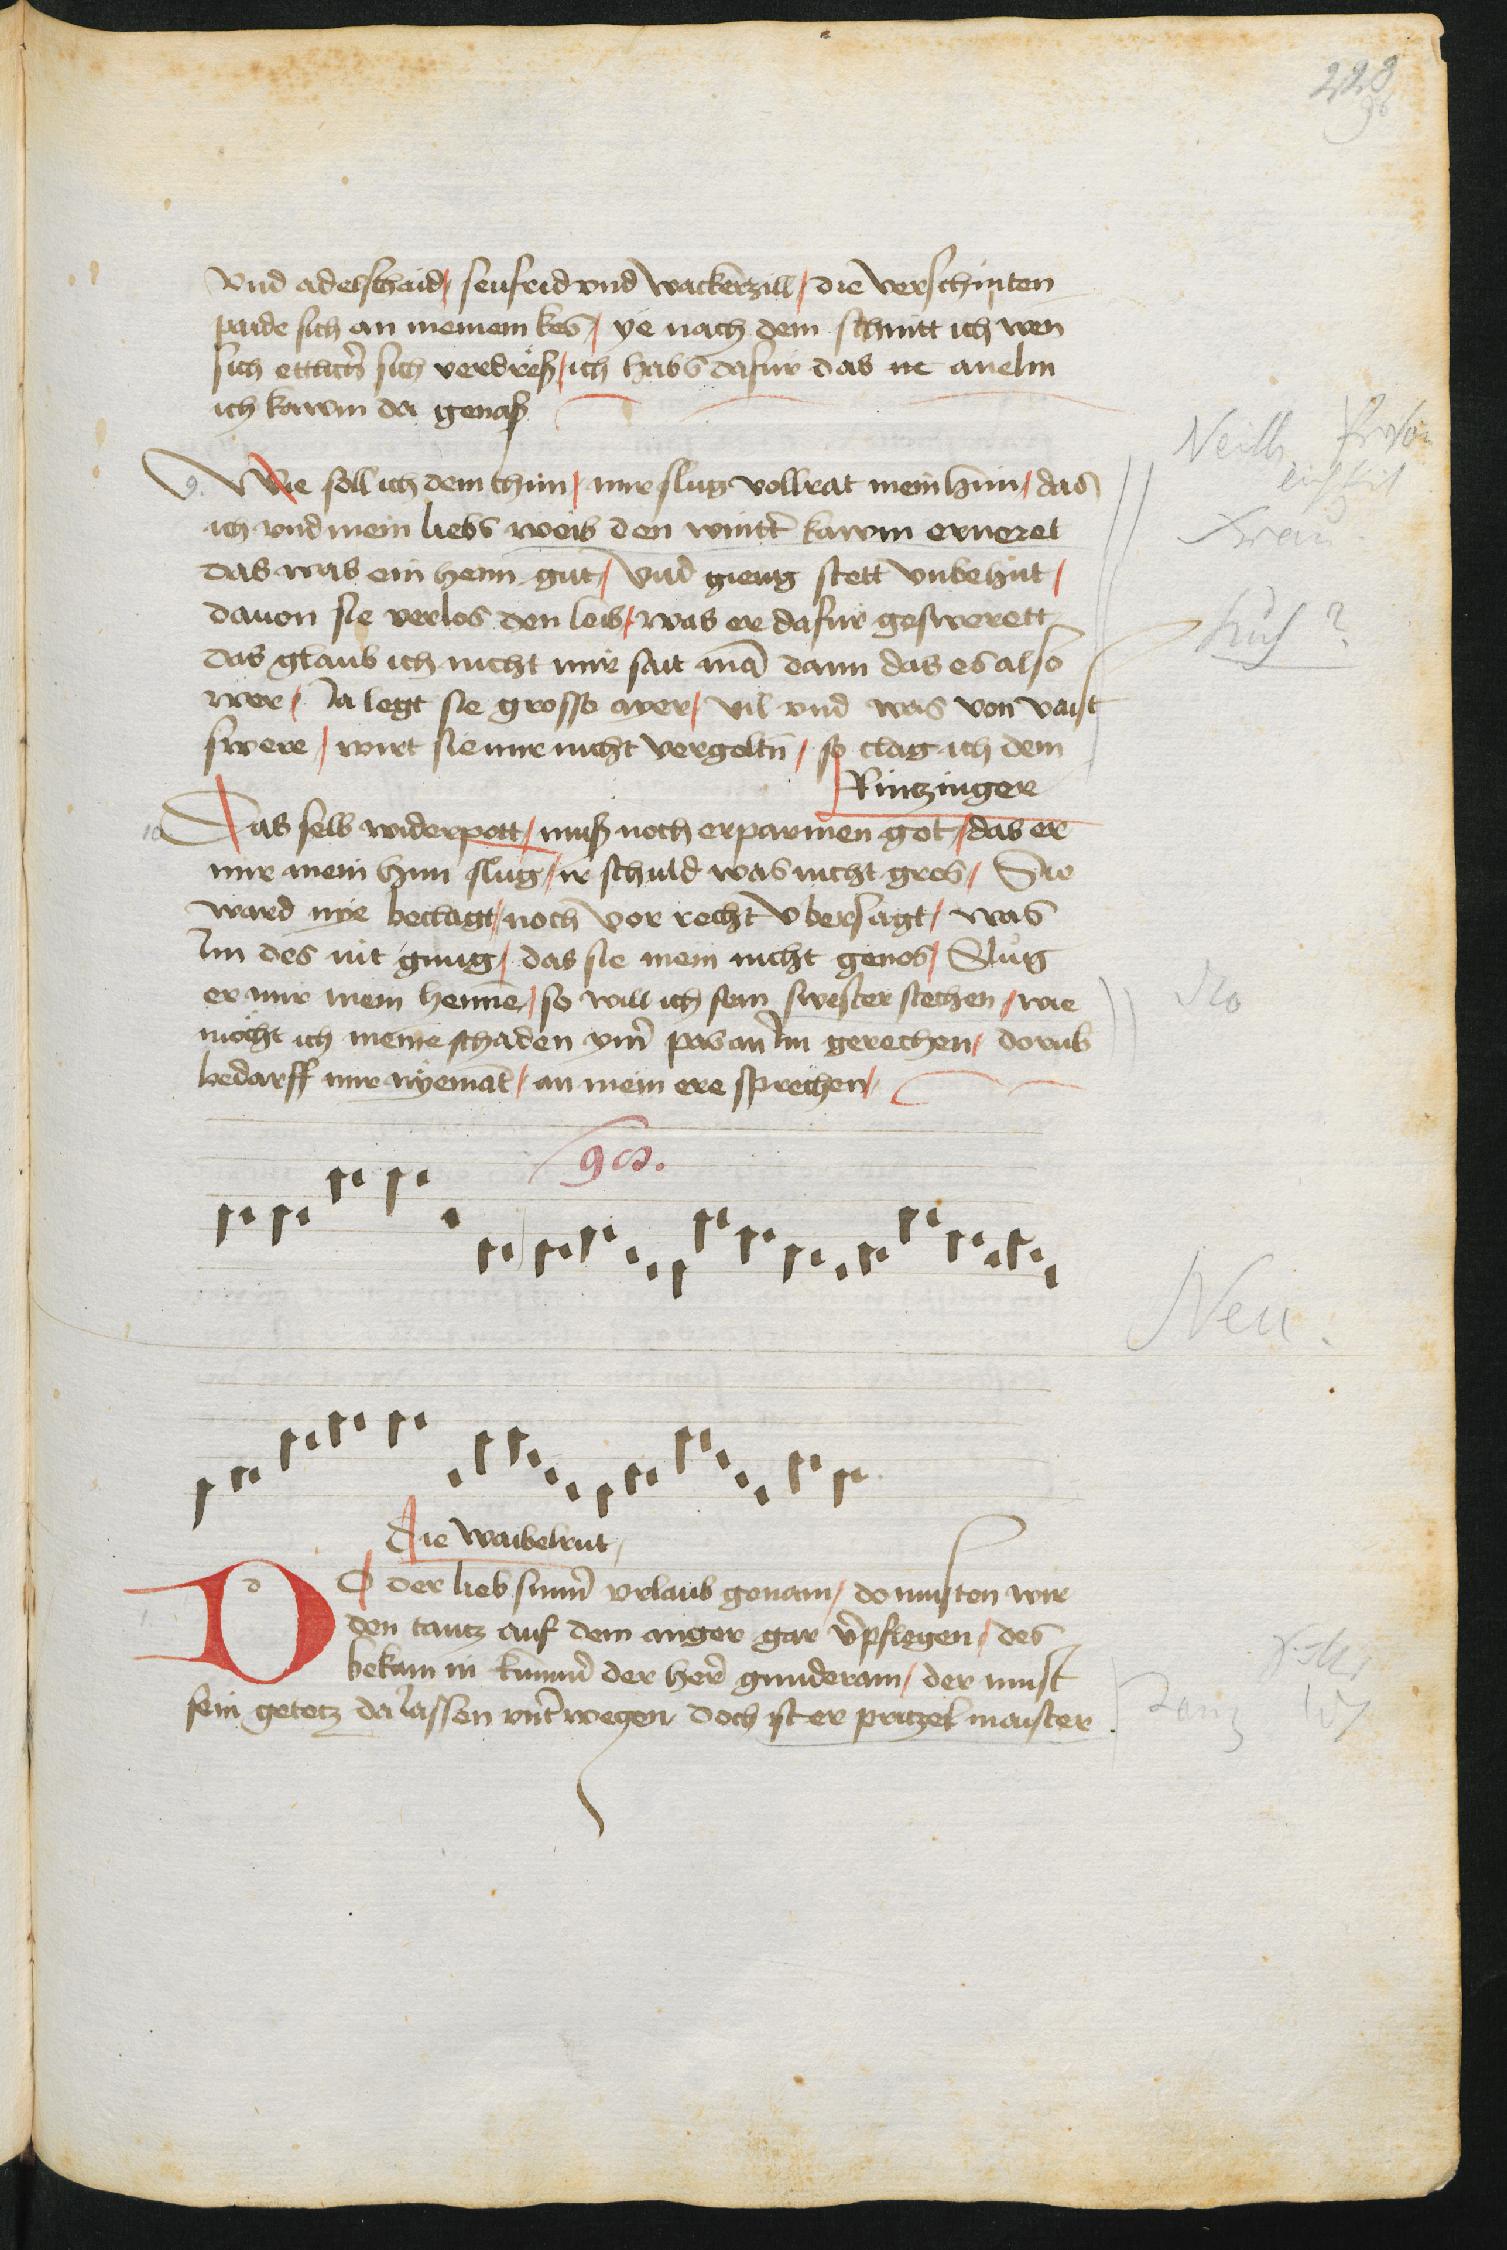 228
96
vnd adelhaid / seufrid vnd wackerzill / die verschinten
paide sich an meinem kes / ye nach dem schnitt ich wen
sich ettlich̄ sich verdreß / ich habs dafur das
ich kawm da genaß
9. Wie soll ich dem thun / mir slug vollrat mein hun / das
ich vnd mein liebs weib den wintt̄ kawm erneret
das was ein henn gut / vnd gieng stett vnbehut /
dauon sie verlos den leib / was er dafur geswerett
das glaub ich nicht mir sait mā dann das es also
wer / Ja legt sie grosse ayer / vil vnd was von vaist
swere / wirt sie mir nicht vergoltn̄ / so clag ich dem
Rintzinger
10 Das selb widerpott / muß noch erparmen got / das er
mir mein hun slug / ir schuld was nicht gros / Sie
ward nye beclagt / noch vor recht vbersagt / was
Im des nit gnug / das sie mein nicht genos / Slug
er mir mein hennē / so will ich sein swester stechen / wie
möcht ich meine schaden ym̄ pas an Im gerechen / dorub
bedarff mir nyemāt / an mein ere sprechen /
Neu.
Die waibelrut
DO der lieb sum̄ vrlaub genam / do musten wir
den tantz auf dem anger gar v̄pflegen / des
bekam in kumm̄ der her̄ gunderam / der must
sein getetz da lassen vnt̄wegen doch ist er pritzelmaister
Tanz